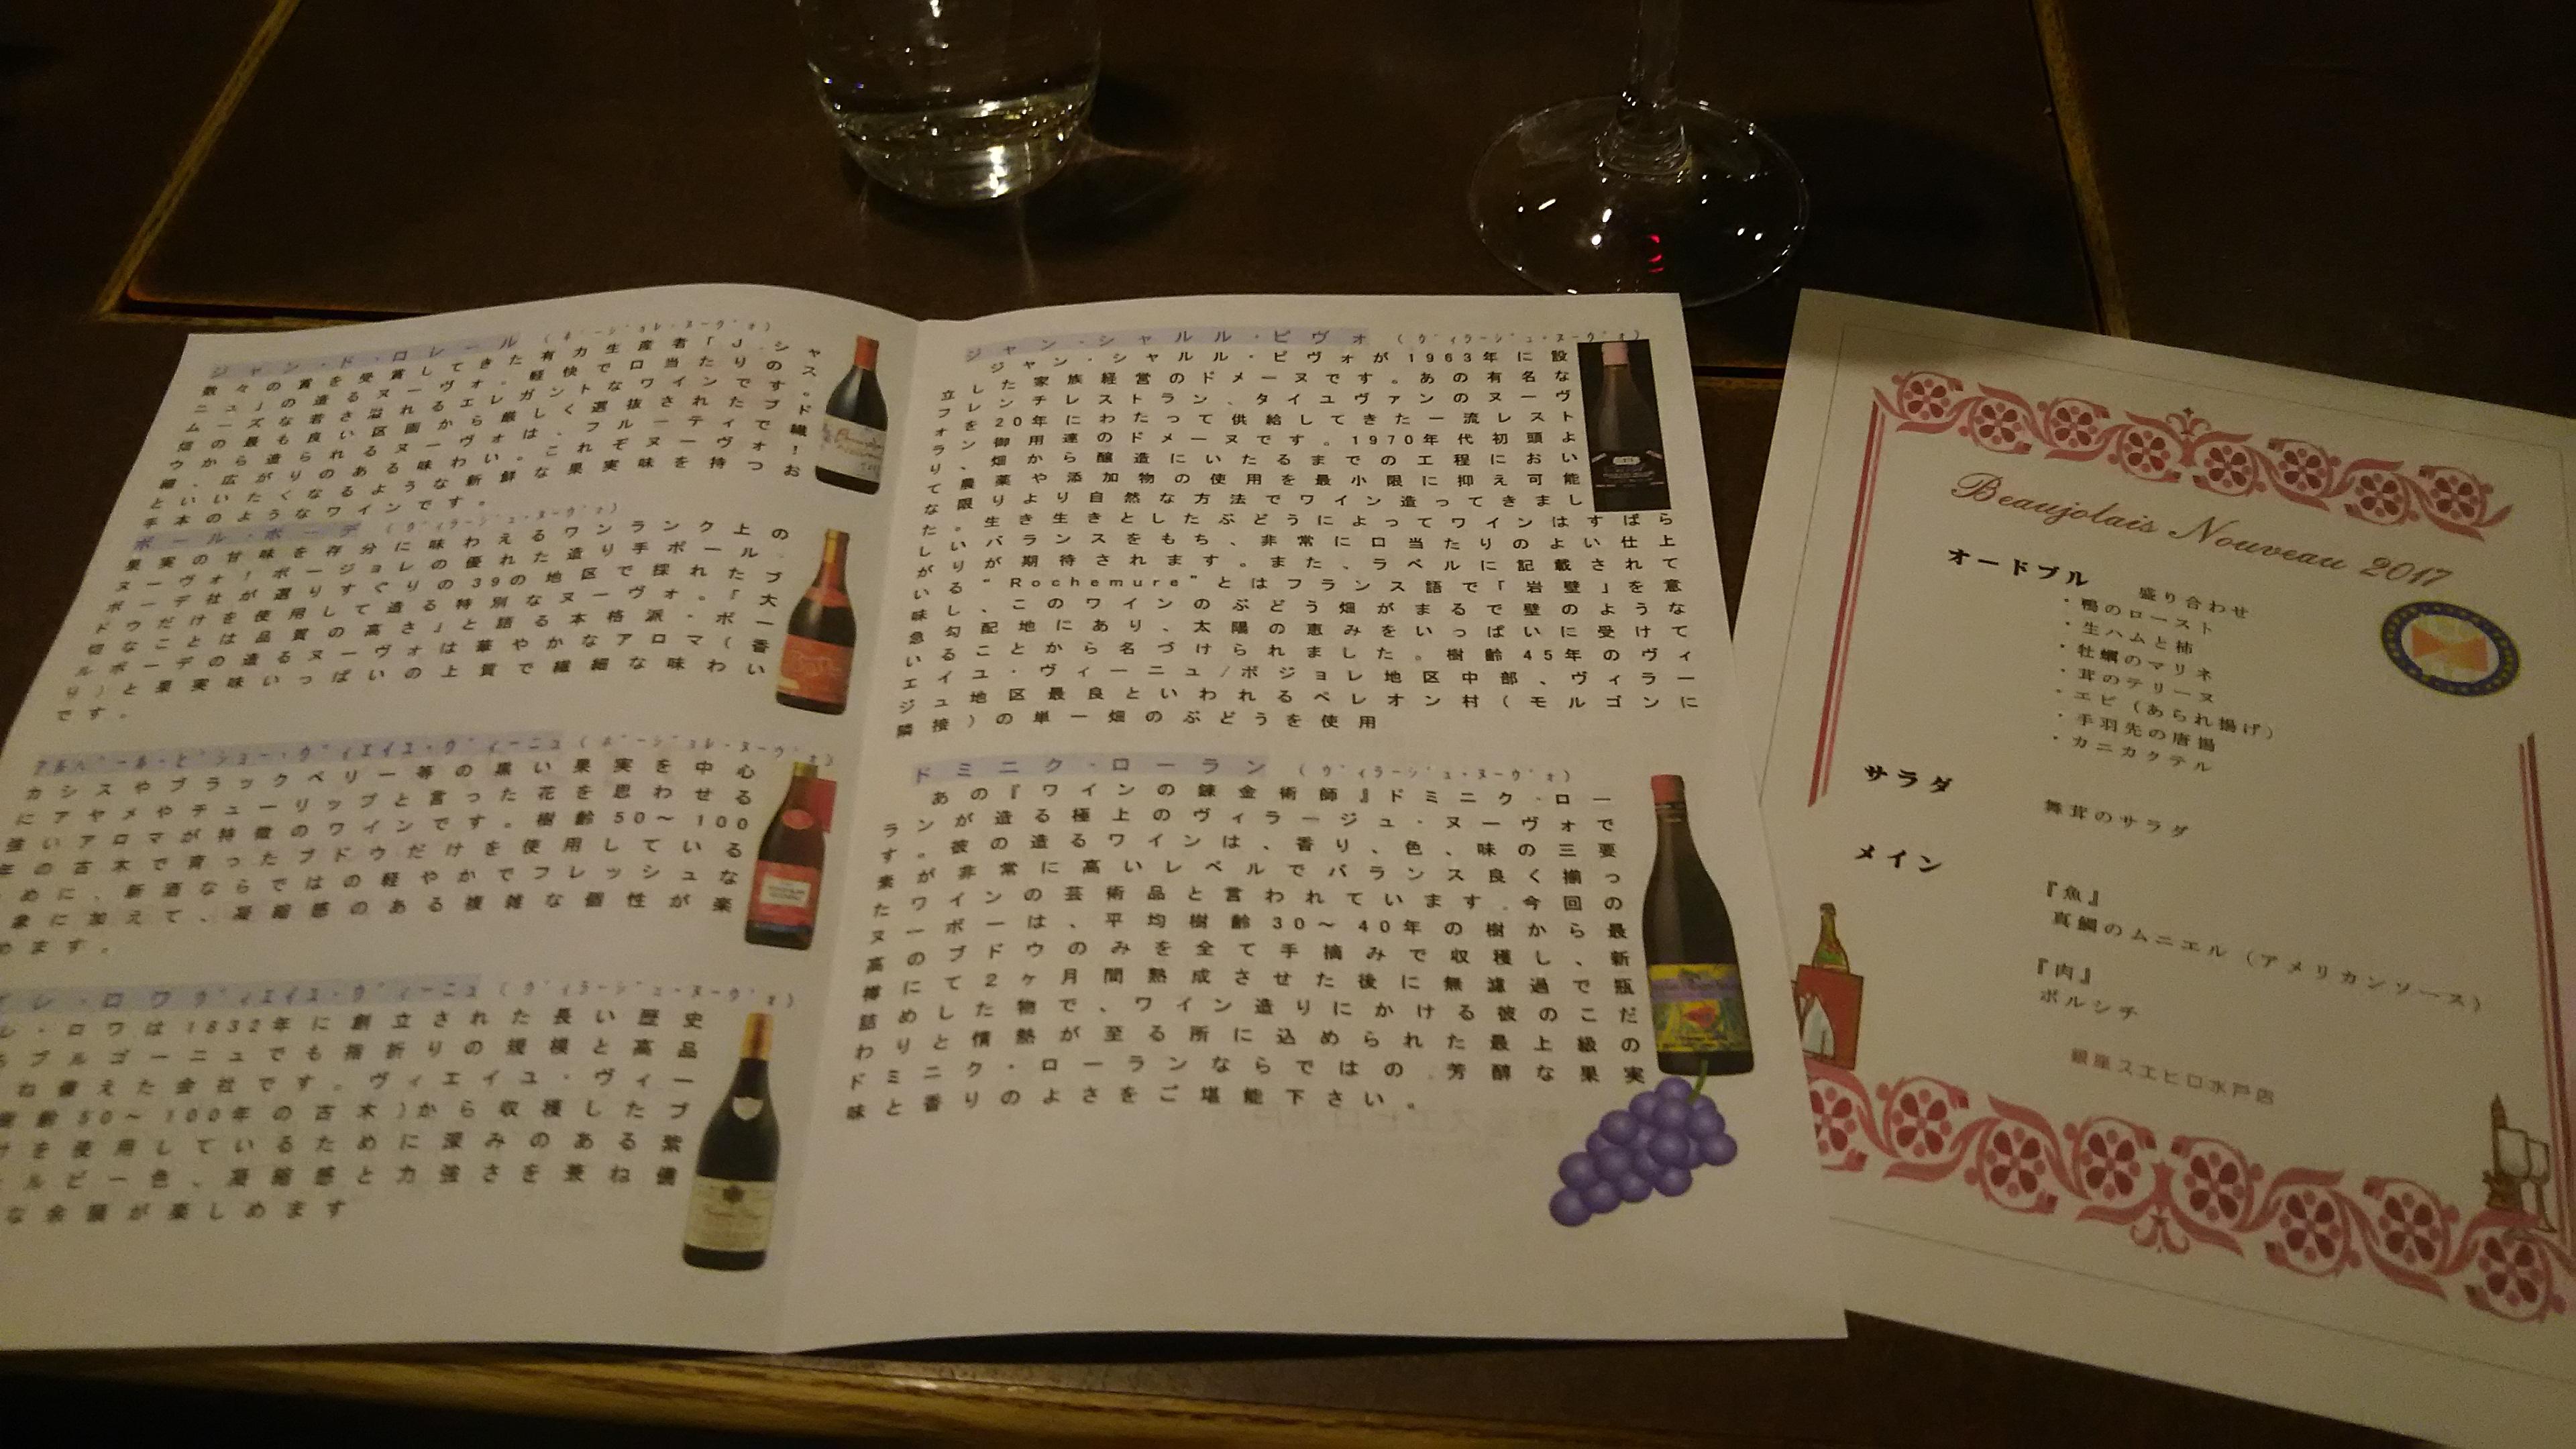 ジャン・ド・ロレール（ボージョレ・ヌーヴォ）
数々の賞を受賞してきた有力生産者「J.シャ
ニュ」の造るヌーヴォ。軽快で口当たりのス
ムーズな若さ溢れるエレガントなワインです。
畑の最も良い区画から厳しく選抜されたブド
ウから造られるヌーヴォは、フルーティで繊
細、広がりのある味わい。これぞヌーヴォ！
といいたくなるような新鮮な果実味を持つお
手本のようなワインです。
ポール・ボーデ（ヴィラージュ・ヌーヴォ）
果実の甘味を存分に味わえるワンランク上の
ヌーヴォ！ボージョレの優れた造り手ポール・
ボーデ社が選りすぐりの39の地区で採れたブ
ドウだけを使用して造る特別なヌーヴォ。「大
切なことは品質の高さ」と語る本格派・ポー
ルボーデの造るヌーヴォは華やかなアロマ（香
り）と果実味いっぱいの上質で繊細な味わい
です。
アルベール・ビショー・ヴィエイユ・ヴィーニュ（ボージョレ・ヌーヴォ）
カシスやブラックベリー等の黒い果実を中心
にアヤメやチューリップと言った花を思わせる
強いアロマが特徴のワインです。樹齢50～100
年の古木で育ったブドウだけを使用している
めに、新酒ならではの軽やかでフレッシュな
象に加えて、凝縮感のある複雑な個性が楽
めます。
レ・ロワ ヴィエイユ・ヴィーニュ（ヴィラージュ・ヌーヴォ）
レ・ロワは1832年に創立された長い歴史
ブルゴーニュでも指折りの規模と高品
ね備えた会社です。ヴィエイユ・ヴィー
樹齢50～100年の古木)から収穫したブ
けを使用しているために深みのある紫
ルビー色、凝縮感と力強さを兼ね備
な余韻が楽しめます
ジャン・シャルル・ピヴォ（ヴィラージュ・ヌーヴォ）
ジャン・シャルル・ピヴォが1963年に設
立した家族経営のドメーヌです。あの有名な
フレンチレストラン、タイユヴァンのヌーヴ
ォを20年にわたって供給してきた一流レスト
ラン御用達のドメーヌです。1970年代初頭よ
り、畑から醸造にいたるまでの工程におい
て農薬や添加物の使用を最小限に抑え可能
な限りより自然な方法でワイン造ってきまし
た。生き生きとしたぶどうによってワインはすばら
しいバランスをもち、非常に口当たりのよい仕上
がりが期待されます。また、ラベルに記載されて
いる“Rochemure”とはフランス語で「岩壁」を意
味し、このワインのぶどう畑がまるで壁のような
急勾配地にあり、太陽の恵みをいっぱいに受けて
いることから名づけられました。樹齢45年のヴィ
エイユ・ヴィーニュ/ボジョレ地区中部、ヴィラー
ジュ地区最良といわれるペレオン村（モルゴンに
隣接）の単一畑のぶどうを使用
ドミニク・ローラン（ヴィラージュ・ヌーヴォ）
あの『ワインの錬金術師』ドミニク・ロー
ランが造る極上のヴィラージュ・ヌーヴォで
す。彼の造るワインは、香り、色、味の三要
素が非常に高いレベルでバランス良く揃っ
たワインの芸術品と言われています。今回の
ヌーボーは、平均樹齢30～40年の樹から最
高のブドウのみを全て手摘みで収穫し、新
樽にて2ヶ月間熟成させた後に無濾過で瓶
詰めした物で、ワイン造りにかける彼のこだ
わりと情熱が至る所に込められた最上級の
ドミニク・ローランならではの、芳醇な果実
味と香りのよさをご堪能下さい。
Beaujolais Nouveau 2017
オードブル
盛り合わせ
・鴨のロースト
・生ハムと柿
・牡蠣のマリネ
・茸のテリーヌ
・エビ（あられ揚げ）
・手羽先の唐揚
・カニカクテル
サラダ
舞茸のサラダ
メイン
『魚』
真鯛のムニエル（アメリカンソース）
『肉』
ボルシチ
銀座スエヒロ水戸店